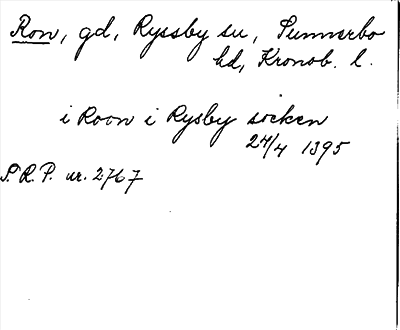 Ron, gd, Ryssby sn, Sunnerbo
hd, Kronob. l.
i Roon i Rysby socken
24/4 1395
S.R.P. nr. 2767